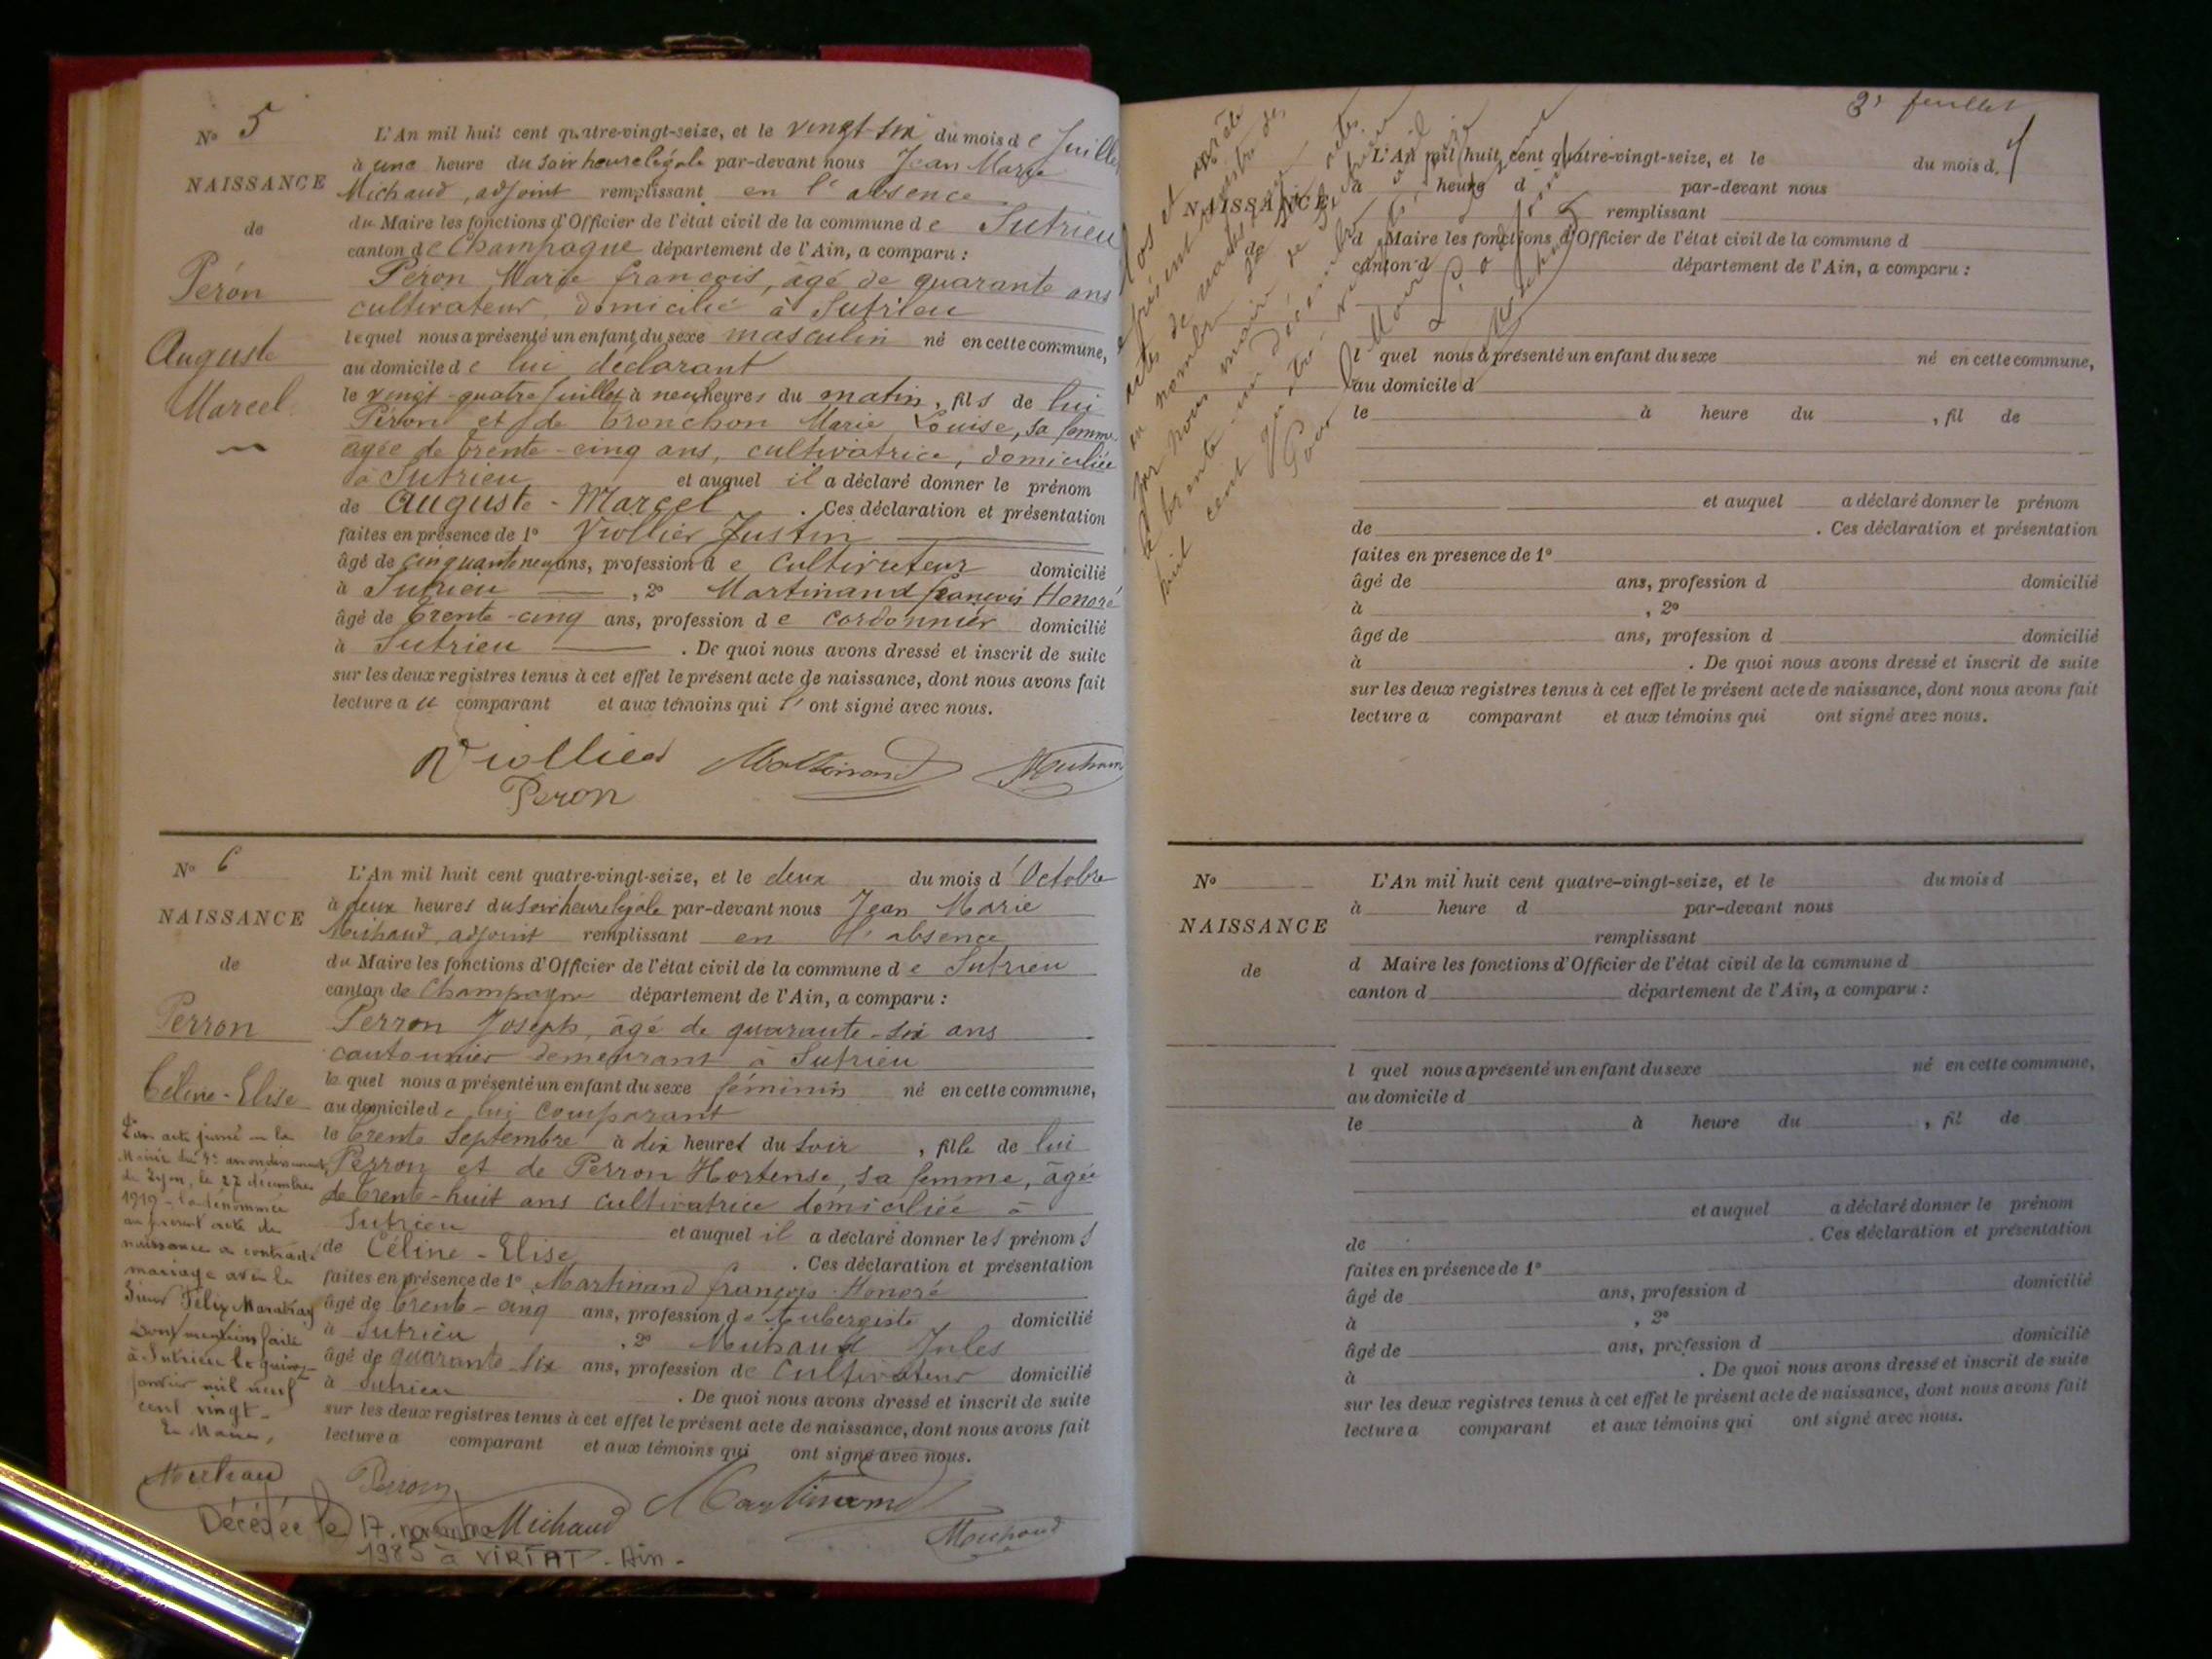 N° 5
NAISSANCE
de
Péron
Auguste
Marcel
L'An mil huit cent quatre-vingt-seize, et le vingt-six du mois de Juillet
à une heure du soir heure légale par-devant nous Jean Marie
Michaud, adjoint remplissant en l'absence
du Maire les fonctions d'Officier de l'état civil de la commune de Sutrieu
canton de Champagne département de l'Ain, a comparu :
Péron Marie françois, âgé de quarante ans
cultivateur, domicilié à Sutrieu
lequel nous a présenté un enfant du sexe masculin né en cette commune,
au domicile de lui déclarant
le vingt-quatre Juillet à neuf heures du matin, fils de lui
Péron et de Tronchon Marie Louise, sa femme
agée de trente-cinq ans, cultivatrice, domiciliée
à Sutrieu et auquel il a déclaré donner le prénom
de Auguste-Marcel. Ces déclaration et présentation
faites en présence de 1° Viollier Justin
âgé de cinquante neuf ans, profession de cultivateur domicilié
à Sutrieu, 2° Martinand françois Honoré
âgé de trente-cinq ans, profession de cordonnier domicilié
à Sutrieu. De quoi nous avons dressé et inscrit de suite
sur les deux registres tenus à cet effet le présent acte de naissance, dont nous avons fait
lecture au comparant et aux témoins qui l'ont signé avec nous.
Viollier Martinand Michaud
Peron
N° 6
NAISSANCE
de
Perron
Céline-Elise
L'An mil huit cent quatre-vingt-seize, et le deux du mois d'Octobre
à deux heures du soir heure légale par-devant nous Jean Marie
Michaud, adjoint remplissant en l'absence
du Maire les fonctions d'Officier de l'état civil de la commune de Sutrieu
canton de Champagne département de l'Ain, a comparu :
Perron Joseph, âgé de quarante-six ans
cantonnier demeurant à Sutrieu
lequel nous a présenté un enfant du sexe féminin né en cette commune,
au domicile de lui comparant
le trente Septembre à dix heures du soir, fille de lui
Perron et de Perron Hortense, sa femme, âgée
de trente-huit ans cultivatrice domiciliée à
Sutrieu et auquel il a déclaré donner les prénoms
de Céline-Elise. Ces déclaration et présentation
faites en présence de 1° Martinand françois Honoré
âgé de trente-cinq ans, profession de Aubergiste domicilié
à Sutrieu, 2° Michaud Jules
âgé de quarante-six ans, profession de Cultivateur domicilié
à Sutrieu. De quoi nous avons dressé et inscrit de suite
sur les deux registres tenus à cet effet le présent acte de naissance, dont nous avons fait
lecture a comparant et aux témoins qui ont signé avec nous.
acte passé à la
Mairie du arrondissement
de Lyon, le 27 décembre
1919 - la dénommée
au présent acte de
naissance a contracté
mariage avec le
Sieur Félix
Dont mention faite
à Sutrieu le quinze
janvier mil neuf
cent vingt-
Le Maire,
Michaud Perron Martinand
Michaud Michaud
Décédée le 17 novembre
1985 à VIRIAT - Ain -
3e feuillet
Clos et arrêté
le présent registre des
actes de naissance
au nombre de six actes
par nous maire de Sutrieu
le trente-un décembre mil
huit cent quatre-vingt-seize
Pour le Maire
NAISSANCE
de
L'An mil huit cent quatre-vingt-seize, et le du mois d
à heure d par-devant nous
remplissant
d Maire les fonctions d'Officier de l'état civil de la commune d
canton d département de l'Ain, a comparu :
l quel nous a présenté un enfant du sexe né en cette commune,
au domicile d
le à heure du , fil de
et auquel a déclaré donner le prénom
de . Ces déclaration et présentation
faites en présence de 1°
âgé de ans, profession d domicilié
à , 2°
âgé de ans, profession d domicilié
à . De quoi nous avons dressé et inscrit de suite
sur les deux registres tenus à cet effet le présent acte de naissance, dont nous avons fait
lecture a comparant et aux témoins qui ont signé avec nous.
N°
NAISSANCE
de
L'An mil huit cent quatre-vingt-seize, et le du mois d
à heure d par-devant nous
remplissant
d Maire les fonctions d'Officier de l'état civil de la commune d
canton d département de l'Ain, a comparu :
l quel nous a présenté un enfant du sexe né en cette commune,
au domicile d
le à heure du , fil de
et auquel a déclaré donner le prénom
de . Ces déclaration et présentation
faites en présence de 1°
âgé de ans, profession d domicilié
à , 2°
âgé de ans, profession d domicilié
à . De quoi nous avons dressé et inscrit de suite
sur les deux registres tenus à cet effet le présent acte de naissance, dont nous avons fait
lecture a comparant et aux témoins qui ont signé avec nous.